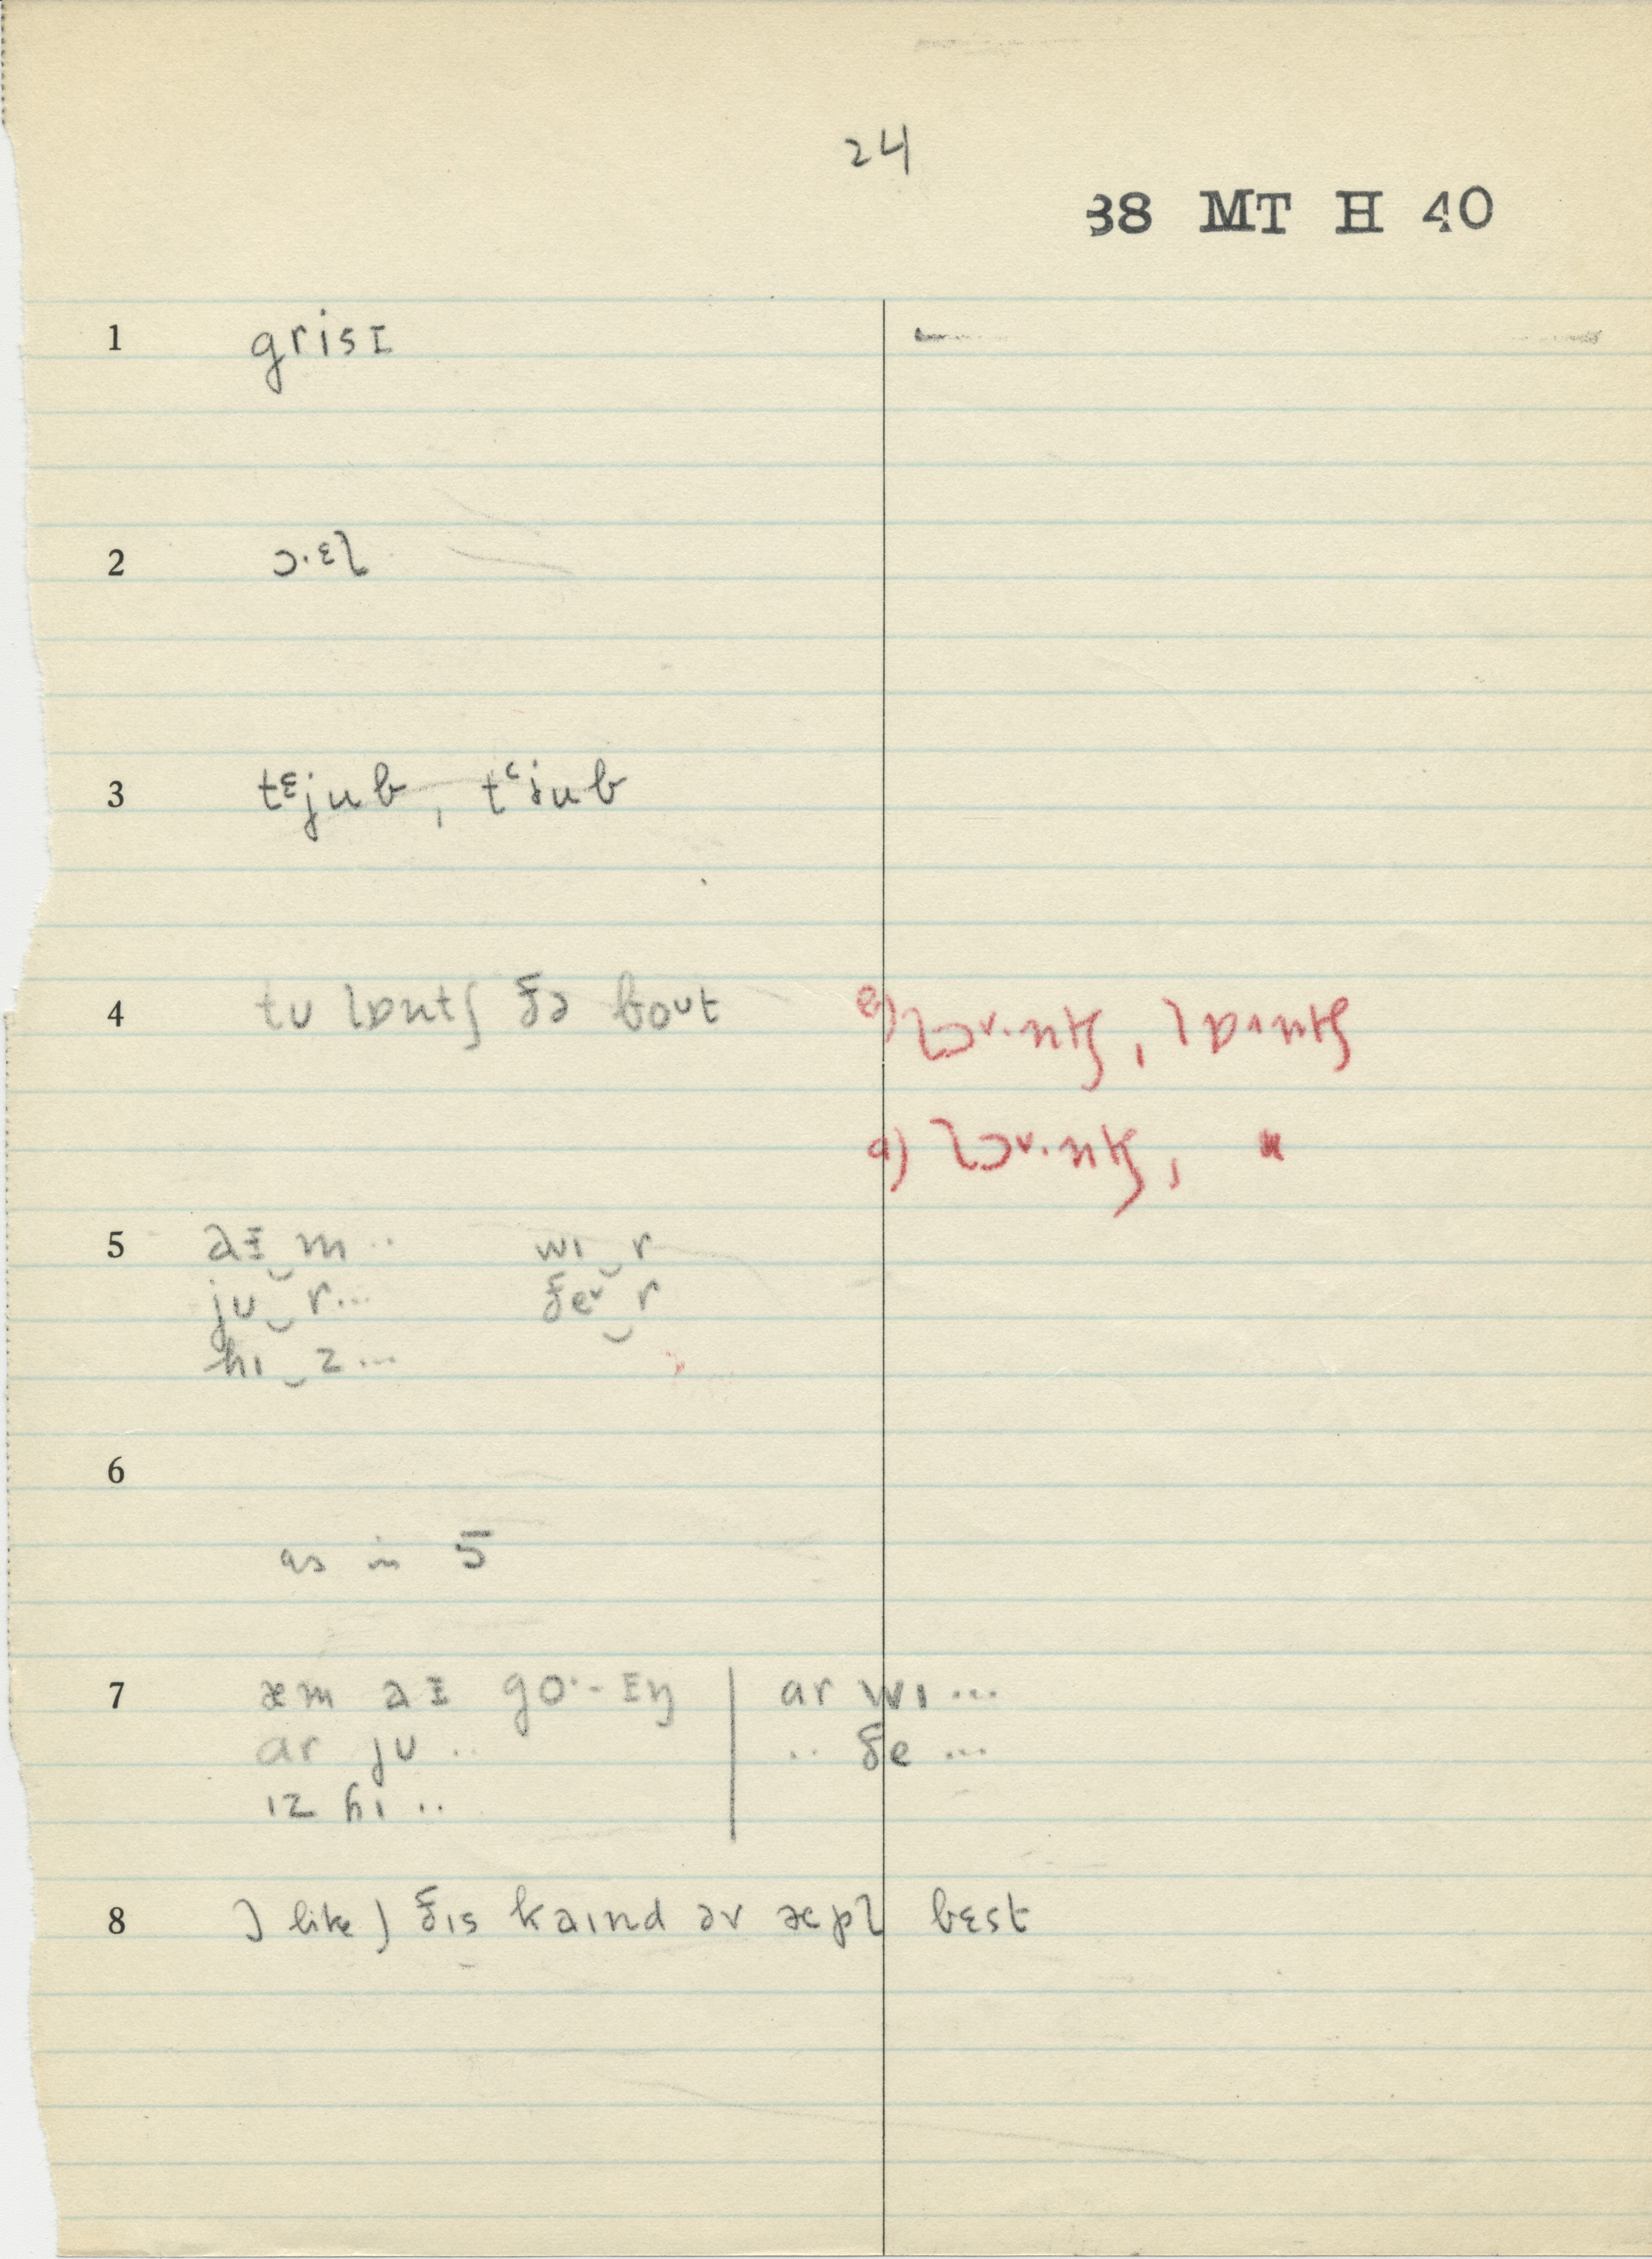 24
38 MT H 40
1 grisɪ
2 ɔ·ᵋl
3 tᵋjub, tᶜjub
4 tʊ lɒntʃ ðə boᴜt
a) lɔᵛ·ntʃ, lɒ˄ntʃ
a) lɔᵛ·ntʃ, "
5 aɪ‿m .. wɪ‿r
ju‿r... ðeᵛ‿r
hɪ‿z ...
6
as in 5
7 æm aɪ go·-ɪŋ | ar wɪ ...
ar ju .. | .. ðe ...
ɪz hɪ ..
8 I like) ðɪs kaɪnd əv æpl bɛst